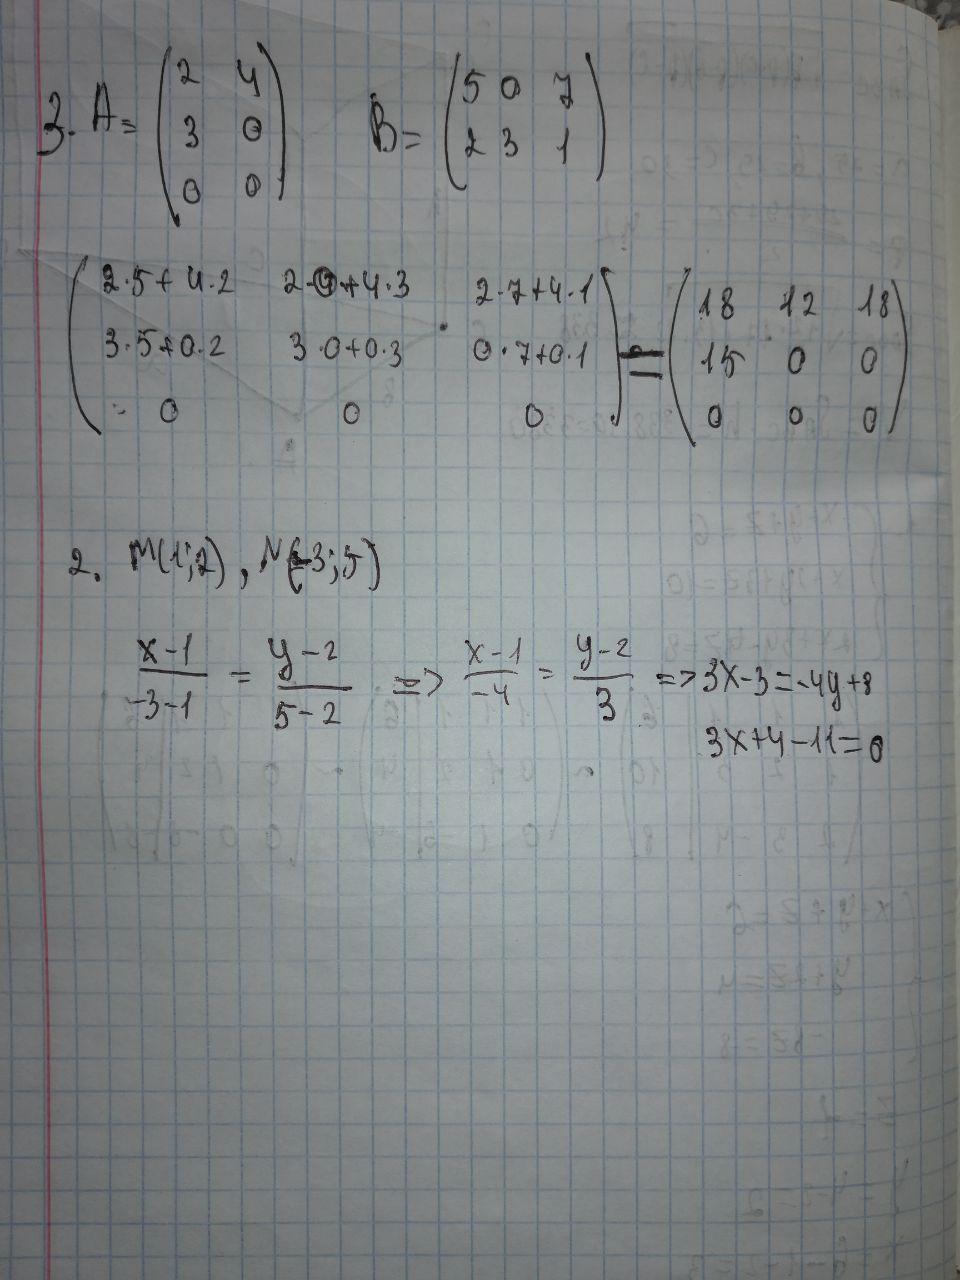 3. A = (2 4
3 0
0 0) B = (5 0 7
2 3 1)
(2·5+4·2 2·0+4·3 2·7+4·1
3·5+0·2 3·0+0·3 0·7+0·1
0 0 0) = (18 12 18
15 0 0
0 0 0)
2. M(1;2), N(-3;5)
x-1/-3-1 = y-2/5-2 => x-1/-4 = y-2/3 => 3x-3=-4y+8
3x+4-11=0